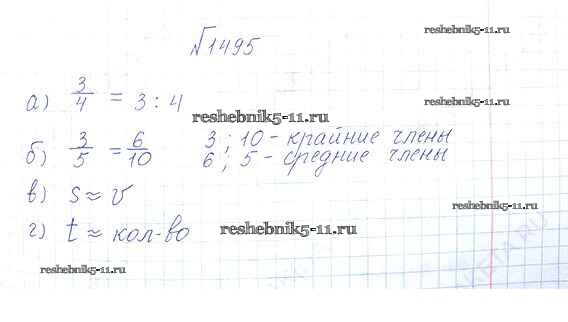 reshebnik5-11.ru
√1495
reshebnik5-11.ru
а) 3/4 = 3 : 4
reshebnik5-11.ru
б) 3/5 = 6/10 3 ; 10 - крайние члены
6 ; 5 - средние члены
в) s ≈ v
reshebnik5-11.ru
г) t ≈ кол-во
reshebnik5-11.ru
reshebnik5-11.ru